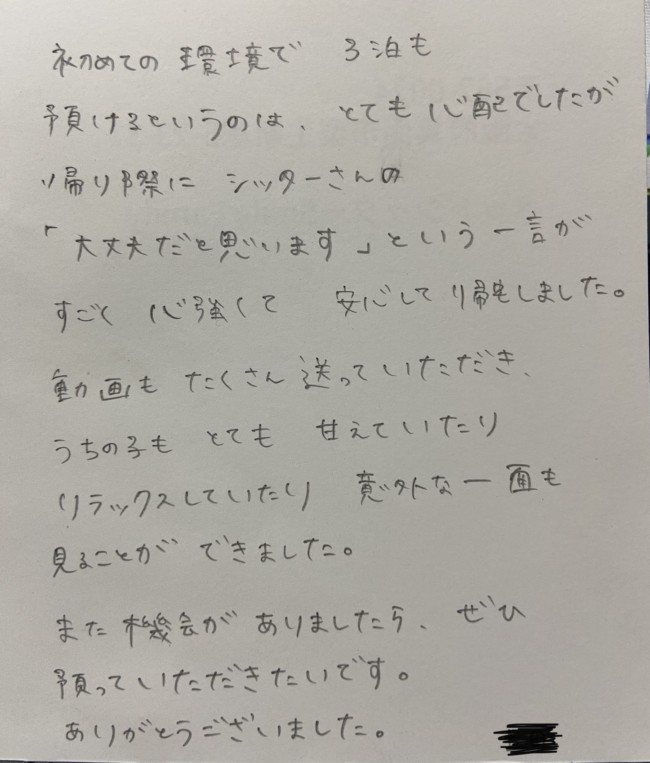 初めての環境で 3泊も
預けるというのは、とても心配でしたが
帰り際に シッターさんの
「大丈夫だと思います」という一言が
すごく心強くて 安心して帰宅しました。
動画も たくさん送っていただき、
うちの子も とても 甘えていたり
リラックスしていたり 意外な一面も
見ることが できました。
また機会が ありましたら、ぜひ
預っていただきたいです。
ありがとうございました。